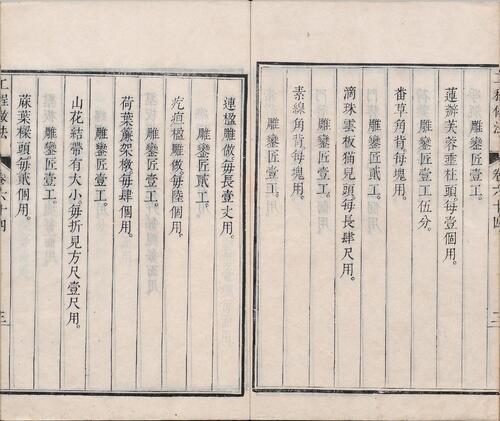 蓮瓣芙蓉垂柱頭。每壹個用。
雕鑾匠壹工伍分。
番草角背每塊用。
雕鑾匠貳工。
滴珠雲板猫兒頭。每長肆尺用。
雕鑾匠壹工。
素線角背。每塊用。
雕鑾匠壹工。
連楹雕做每長壹丈用。
雕鑾匠貳工。
疙疸楹雕做每陸個用。
雕鑾匠壹工。
荷葉簾架橔每肆個用。
雕鑾匠壹工。
山花結帶有大小每折見方尺壹尺用。
雕鑾匠壹工。
蔴葉樑頭每貳個用。
工程做法
卷六十四
三